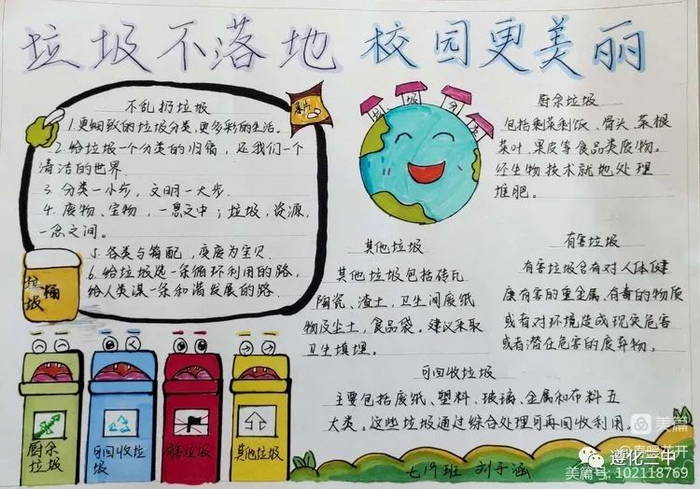 垃圾不落地 校园更美丽
不乱扔垃圾
1.更细致的垃圾分类,更多彩的生活。
2.给垃圾一个分类的归宿,还我们一个
清洁的世界.
3.分类一小步,文明一大步.
4.废物、宝物,一念之中;垃圾,资源,
一念之间。
5.各类与简配,变废为宝贝.
6.给垃圾选一条循环利用的路,
给人类谋一条和谐发展的路.
垃圾桶
垃
圾
分
厨余垃圾
包括剩菜剩饭、骨头、菜根
菜叶、果皮等食品类废物。
经生物技术就地处理
堆肥。
其他垃圾
其他垃圾包括砖瓦
陶瓷、渣土、卫生间废纸
物皮尘土,食品袋。建议采取
卫生填埋。
有害垃圾
有害垃圾含有对人体健
康有害的重金属、有毒的物质
或者对环境造成现实危害
或者潜在危害的废弃物。
可回收垃圾
主要包括废纸、塑料、玻璃、金属和布料五
大类。这些垃圾通过综合处理可再回收利用。
厨余
垃圾
可回收垃
圾
有害垃圾
其他垃圾
刘子涵
美篇
遵化三中
美篇号:102118769